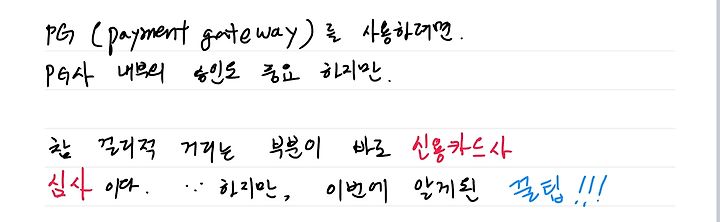 PG (payment gateway)를 사용하려면.
PG사 내부의 승인도 중요 하지만.
참 걸리적 거리는 부분이 바로 신용카드사
심사 이다. ∵ 하지만, 이번에 알게된 꿀팁!!!